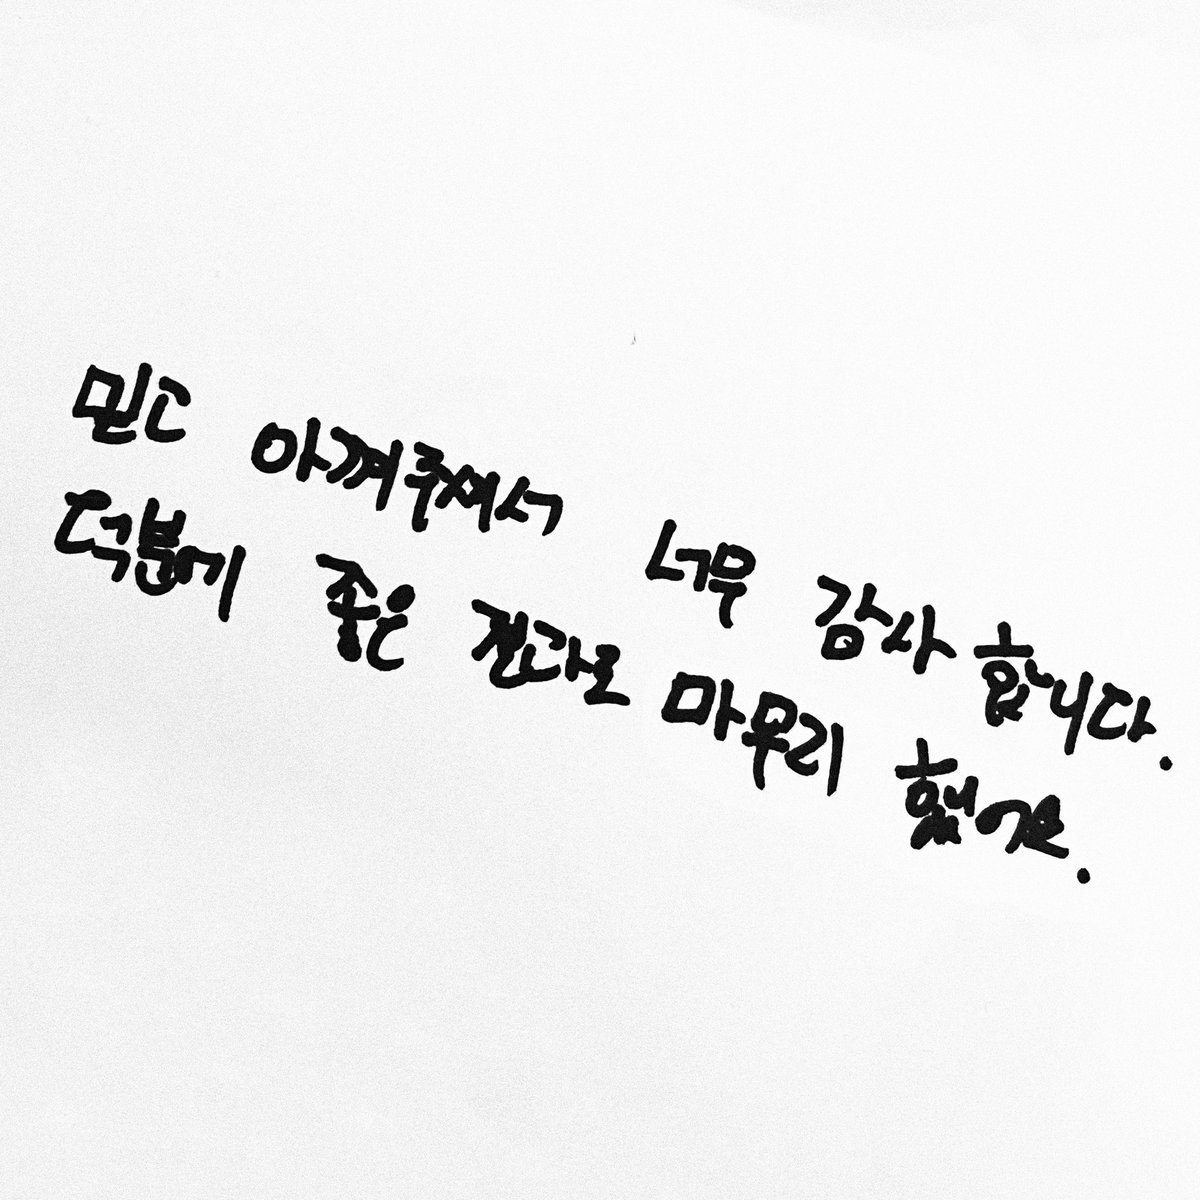 믿고 아껴주셔서 너무 감사합니다.
덕분에 좋은 결과로 마무리 했어요.